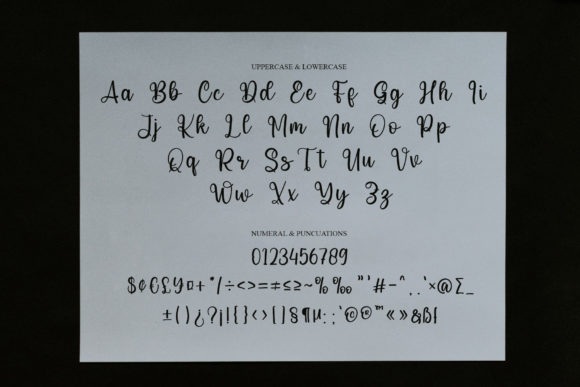 UPPERCASE & LOWERCASE
Aa Bb Cc Dd Ee Ff Gg Hh Ii
Jj Kk Ll Mm Nn Oo Pp
Qq Rr Ss Tt Uu Vv
Ww Xx Yy Zz
NUMERAL & PUNCUATIONS
0123456789
$¢€£¥¤+*/÷<>=≠≤≥~%‰"'#-^.,`×@Σ_
±()¿?¡!{}‹›[]§¶µ:;'©®™«»&ß|